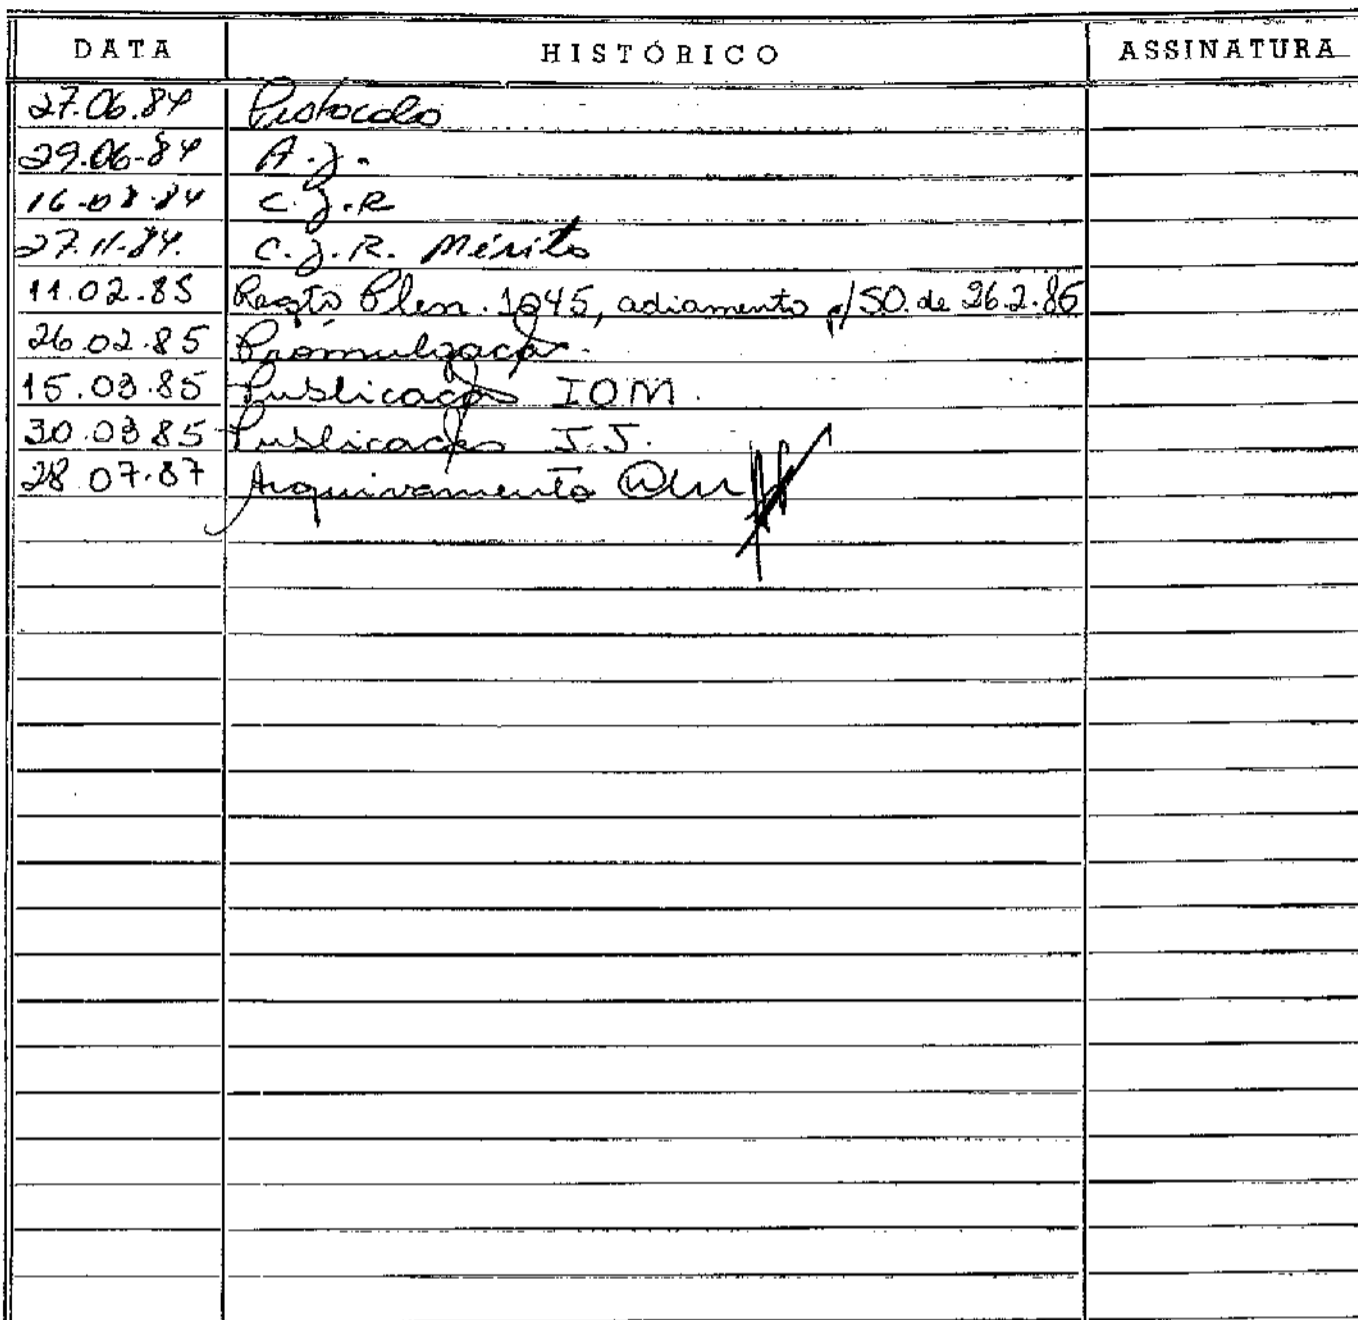 DATA HISTÓRICO ASSINATURA
27.06.84 Protocolo
29.06.84 A.J.
16.08.84 C.J.R
27.11.84. C.J.R. Mérito
11.02.85 Reqtº Plen. 1245, adiamento p/SO. de 26.2.85
26.02.85 Promulgação.
15.03.85 Publicação IOM.
30.03.85 Publicação J.J.
28.07.87 Arquivamento